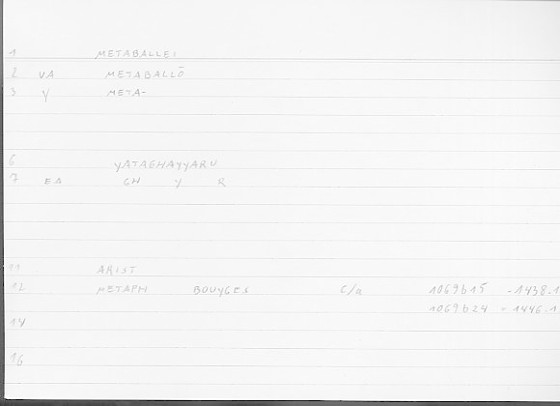 1 METABALLEI
2 VA METABALLŌ
3 Y META-
6 YATAGHAYYARU
7 EA GH Y R
11 ARIST
12 METAPH BOUYGES C/a 1069b15 -1438.1
1069b24 - 1446.1
14
16